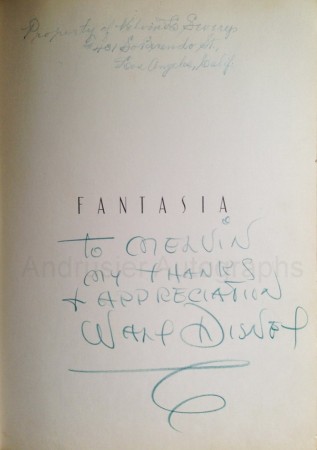 Property of
Los Angeles, Calif
FANTASIA
TO MELVIN
MY THANKS
+ APPRECIATION
WALT DISNEY
Andrusier Autographs